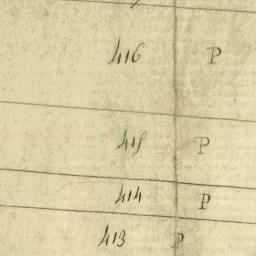 416 P
415 P
414 P
413 P